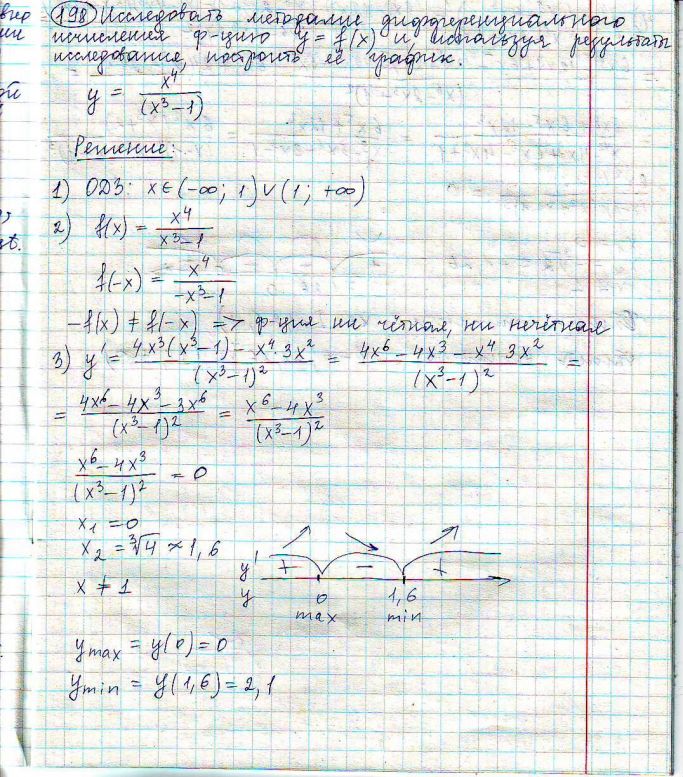 198 Исследовать методами дифференциального
исчисления ф-цию y = f(x) и, используя результаты
исследования, построить её график.
y = x⁴/(x³−1)
Решение:
1) ОДЗ: x∈(−∞; 1)∨(1; +∞)
2) f(x) = x⁴/(x³−1)
f(−x) = x⁴/(−x³−1)
−f(x) ≠ f(−x) => ф-ция ни чётная, ни нечётная
3) y' = (4x³(x³−1) − x⁴·3x²)/(x³−1)² = (4x⁶−4x³−x⁴·3x²)/(x³−1)² =
= (4x⁶−4x³−3x⁶)/(x³−1)² = (x⁶−4x³)/(x³−1)²
(x⁶−4x³)/(x³−1)² = 0
x₁ = 0
x₂ = ³√4 ≈ 1,6
x ≠ 1
y' + − +
y 0 1,6
max min
y max = y(0) = 0
y min = y(1,6) = 2,1